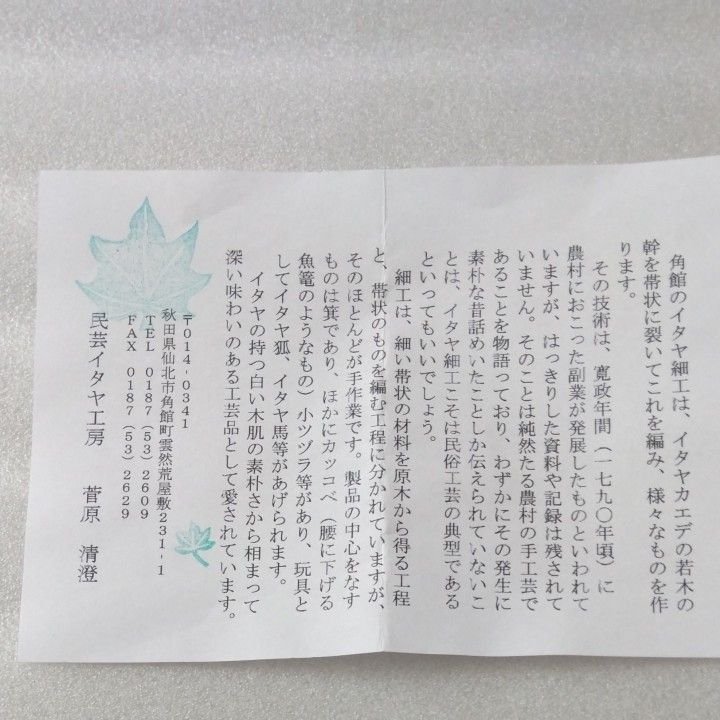 角館のイタヤ細工は、イタヤカエデの若木の
幹を帯状に裂いてこれを編み、様々なものを作
ります。
その技術は、寛政年間（一七九〇年頃）に
農村におこった副業が発展したものといわれて
いますが、はっきりした資料や記録は残されて
いません。そのことは純然たる農村の手工芸で
あることを物語っており、わずかにその発生に
素朴な昔話めいたことしか伝えられていないこ
とは、イタヤ細工こそは民俗工芸の典型である
といってもいいでしょう。
細工は、細い帯状の材料を原木から得る工程
と、帯状のものを編む工程に分かれていますが、
そのほとんどが手作業です。製品の中心をなす
ものは箕であり、ほかにカッコベ（腰に下げる
魚篭のようなもの）小ツヅラ等があり、玩具と
してイタヤ狐、イタヤ馬等があげられます。
イタヤの持つ白い木肌の素朴さから相まって
深い味わいのある工芸品として愛されています。
〒014-0341
秋田県仙北市角館町雲然荒屋敷231-1
TEL 0187(53)2609
FAX 0187(53)2629
民芸イタヤ工房 菅原 清澄